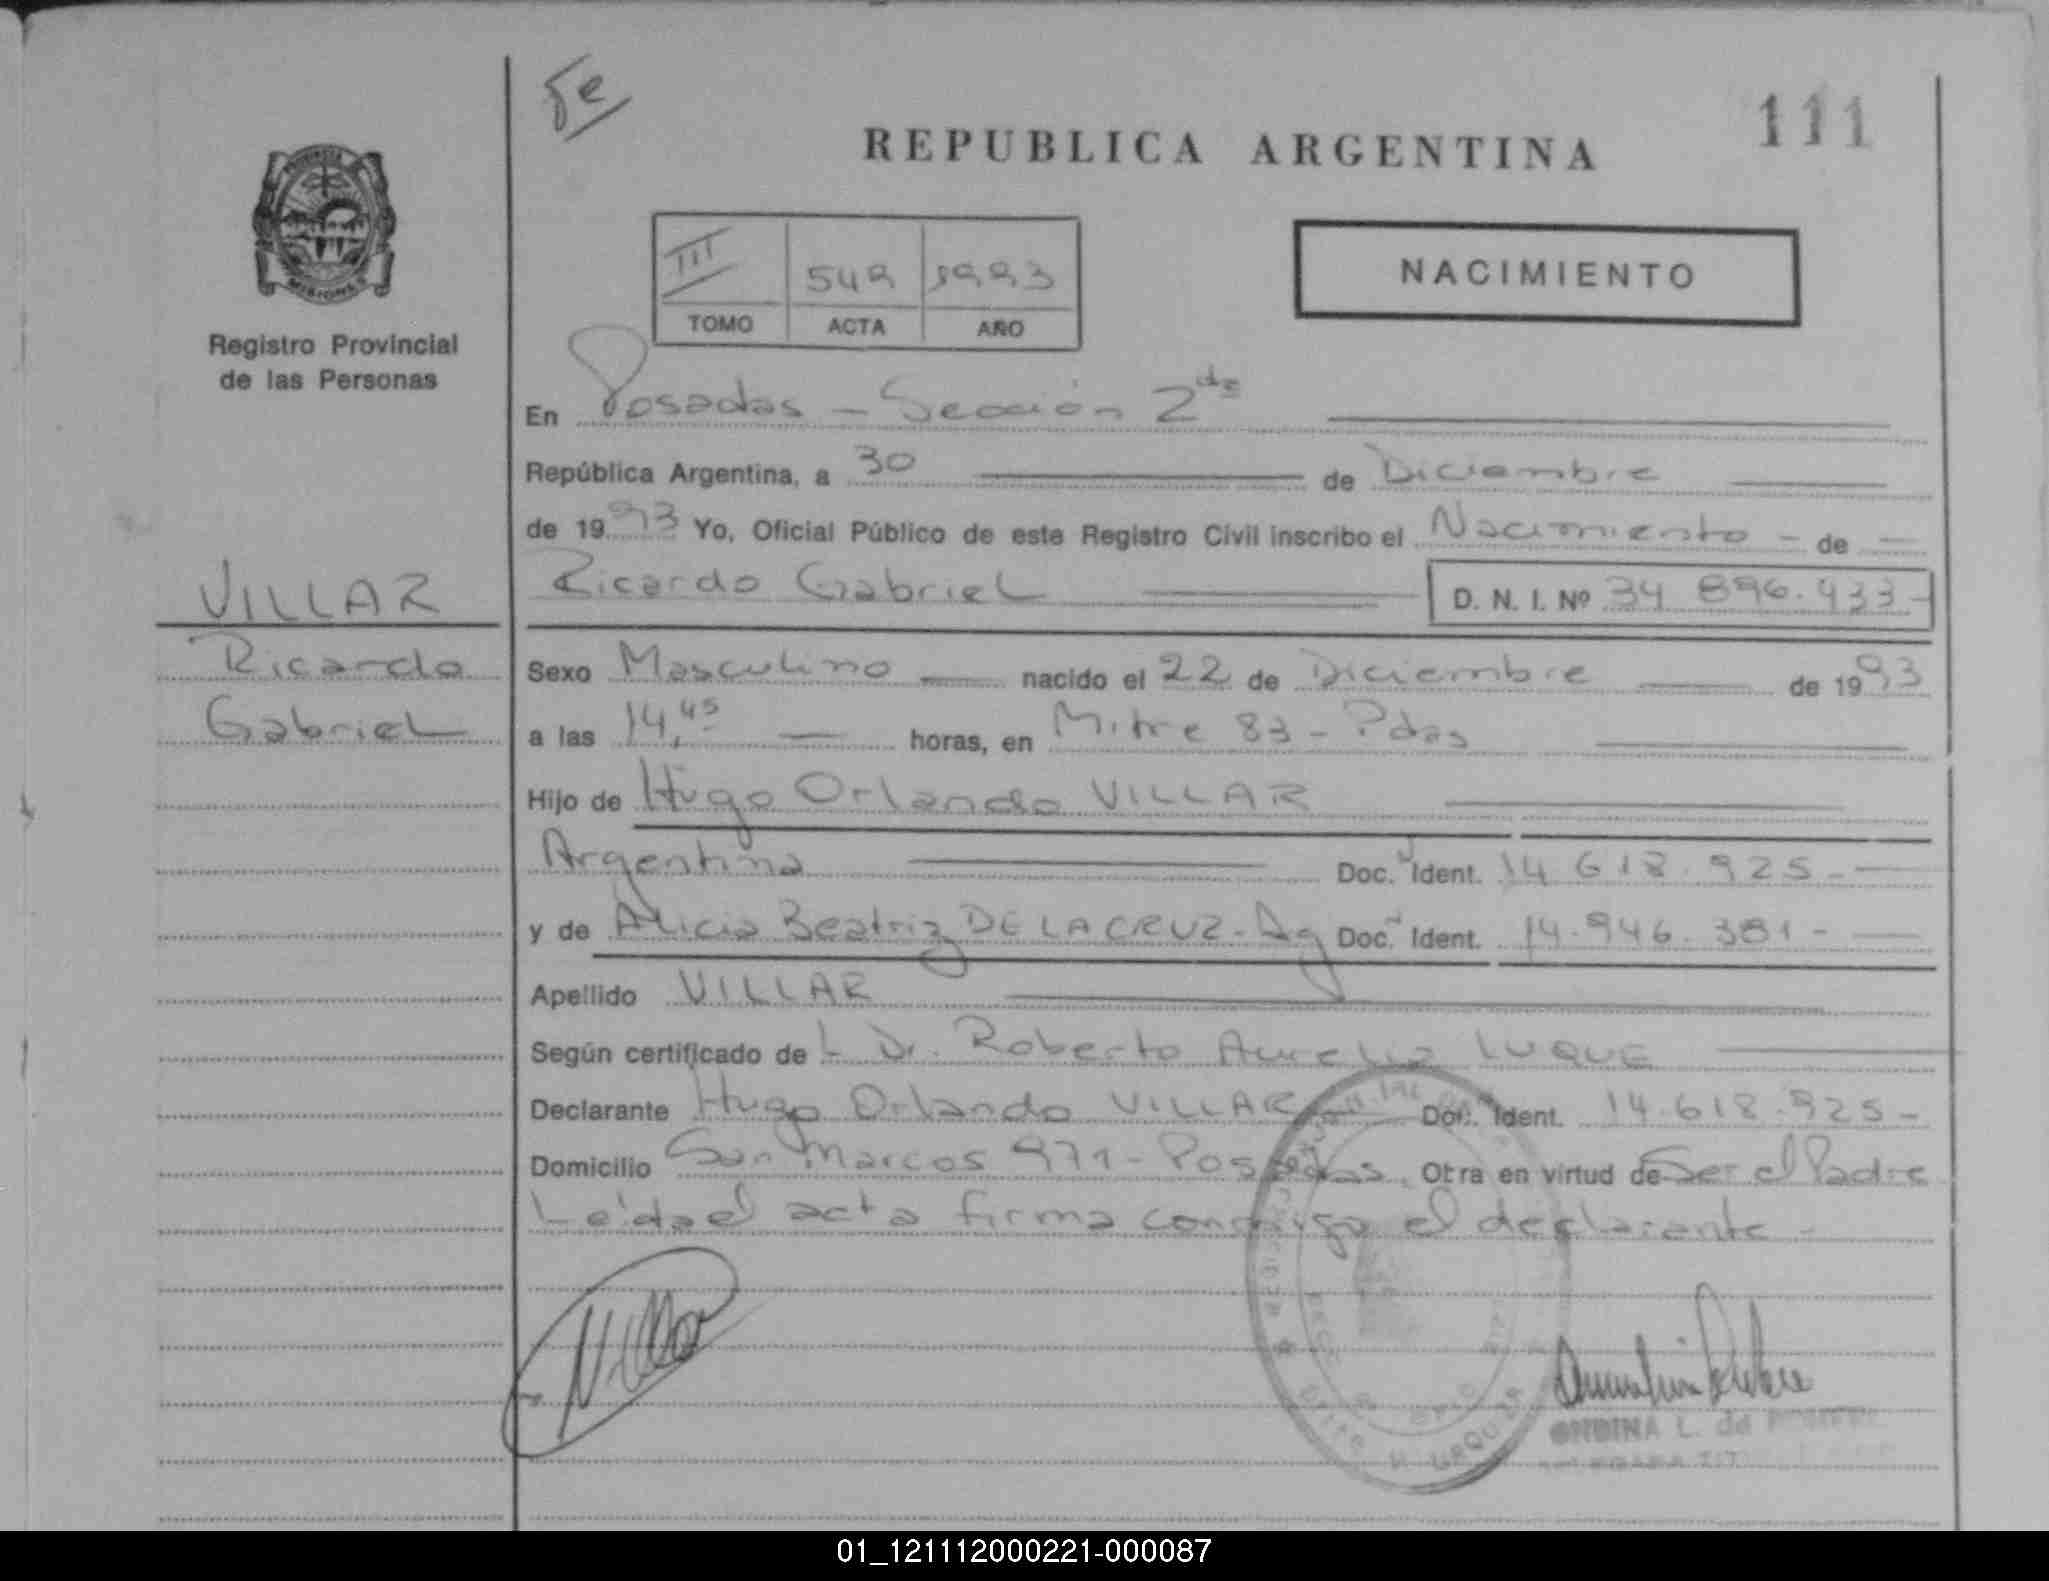 111
REPUBLICA ARGENTINA
MISIONES
Registro Provincial
de las Personas
III 549 1993
TOMO ACTA AÑO
NACIMIENTO
En Posadas - Sección 2da
República Argentina, a 30 de Diciembre
de 1993 Yo, Oficial Público de este Registro Civil inscribo el Nacimiento - de
VILLAR
Ricardo
Gabriel
Ricardo Gabriel D. N. I. Nº 34 896.433-
Sexo Masculino nacido el 22 de Diciembre de 1993
a las 14,45 horas, en Mitre 83 - Pdas
Hijo de Hugo Orlando VILLAR
Argentina Doc. Ident. 14 618.925-
y de Alicia Beatriz DE LA CRUZ - Ag Doc. Ident. 14.946.381-
Apellido VILLAR
Según certificado de L Dr. Roberto Aurelio LUQUE
Declarante Hugo Orlando VILLAR Doc. Ident. 14.618.925-
Domicilio San Marcos 971 - Posadas. Otra en virtud de Ser el Padre
Leída el acta firma conmigo el declarante -
Villar
ONDINA L. de
01_121112000221-000087